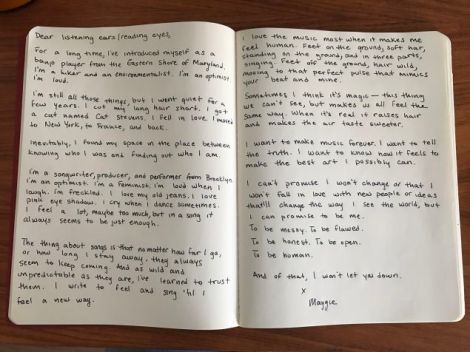 Dear listening ears/reading eyes,
For a long time, I've introduced myself as a
banjo player from the Eastern Shore of Maryland.
I'm a hiker and an environmentalist. I'm an optimist
I'm loud.
I'm still all those things, but I went quiet for a
few years. I cut my long hair short. I got
a cat named Cat Stevens. I fell in love. I moved
to New York, to France, and back.
Inevitably, I found my space in the place between
knowing who I was and finding out who I am.
I'm a songwriter, producer, and performer from Brooklyn.
I'm an optimist. I'm a feminist. I'm loud when I
laugh. I'm freckled. I love my old jeans. I love
pink eye shadow. I cry when I dance sometimes.
I feel a lot, maybe too much, but in a song it
always seems to be just enough.
The thing about songs is that no matter how far I go,
or how long I stay away, they always
seem to keep coming. And as wild and
unpredictable as they are, I've learned to trust
them. I write to feel and sing 'til I
feel a new way.
I love the music most when it makes me
feel human. Feet on the ground, soft hair,
standing on the ground, and in three parts,
singing. Feet off the ground, hair wild,
moving to that perfect pulse that mimics
your beat and mine.
Sometimes I think it's magic - this thing
we can't see, but makes us all feel the
same way. When it's real it raises hair
and makes the air taste sweeter.
I want to make music forever. I want to tell
the truth. I want to know how it feels to
make the best art I possibly can.
I can't promise I won't change or that I
won't fall in love with new people or ideas
that'll change the way I see the world, but
I can promise to be me.
To be messy. To be flawed.
To be honest. To be open.
To be human.
And of that, I won't let you down.
x
Maggie